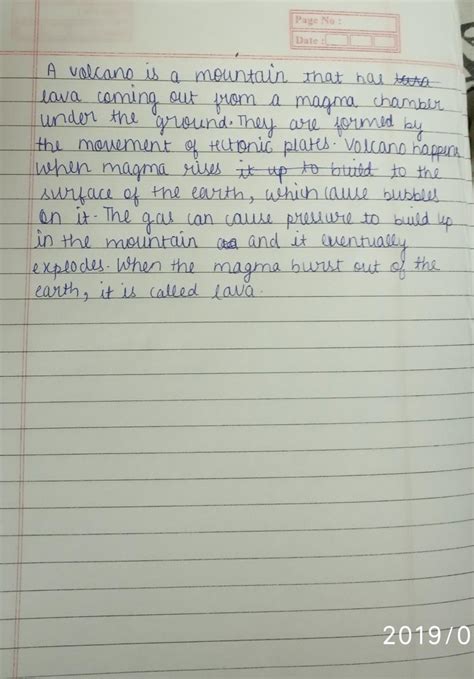 Page No :
Date :
A volcano is a mountain that has
lava coming out from a magma chamber
under the ground. They are formed by
the movement of tectonic plates. Volcano happens
when magma rises it up to build to the
surface of the earth, which cause bubbles
on it. The gas can cause pressure to build up
in the mountain and it eventually
explodes. When the magma burst out of the
earth, it is called lava.
2019/0